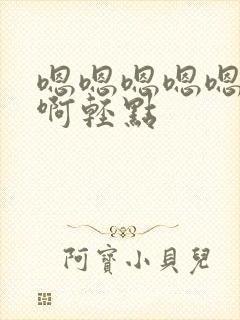 嗯嗯嗯嗯嗯
啊輕點
阿寶小貝兒